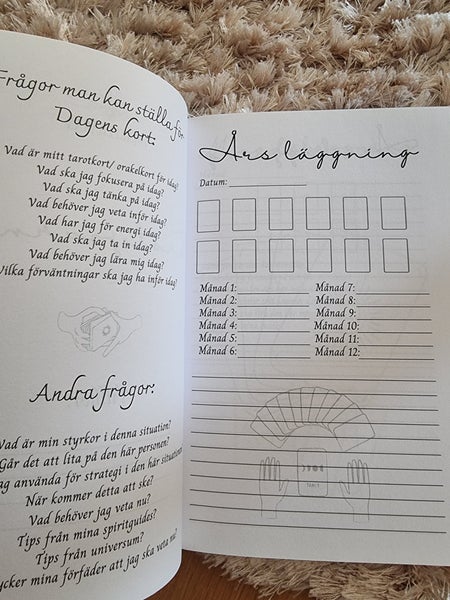 Frågor man kan ställa för
Dagens kort:
Vad är mitt tarotkort/ orakelkort för idag?
Vad ska jag fokusera på idag?
Vad ska jag tänka på idag?
Vad behöver jag veta inför idag?
Vad har jag för energi idag?
Vad ska jag ta in idag?
Vad behöver jag lära mig idag?
Vilka förväntningar ska jag ha inför idag?
Andra frågor:
Vad är min styrkor i denna situation?
Går det att lita på den här personen?
använda för strategi i den här situationen
När kommer detta att ske?
Vad behöver jag veta nu?
Tips från mina spiritguides?
Tips från universum?
mina förfäder att jag ska veta nu?
Års läggning
Datum:
Månad 1:
Månad 2:
Månad 3:
Månad 4:
Månad 5:
Månad 6:
Månad 7:
Månad 8:
Månad 9:
Månad 10:
Månad 11:
Månad 12:
TAROT